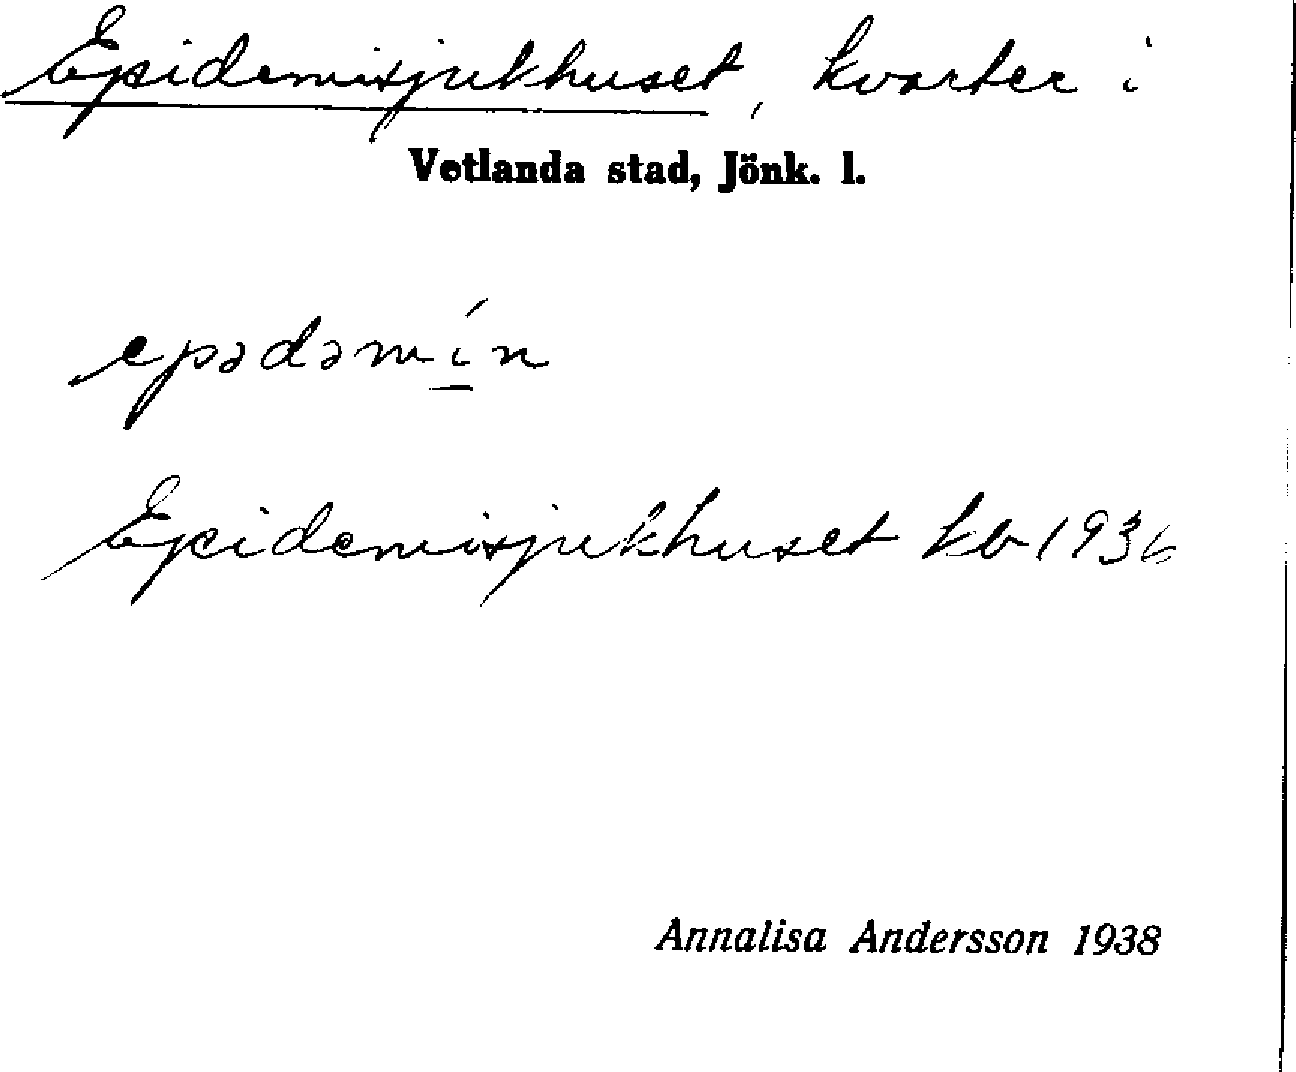 Epidemisjukhuset, kvarter i
Vetlanda stad, Jönk. l.
epədəmín
Epidemisjukhuset kv 1936
Annalisa Andersson 1938